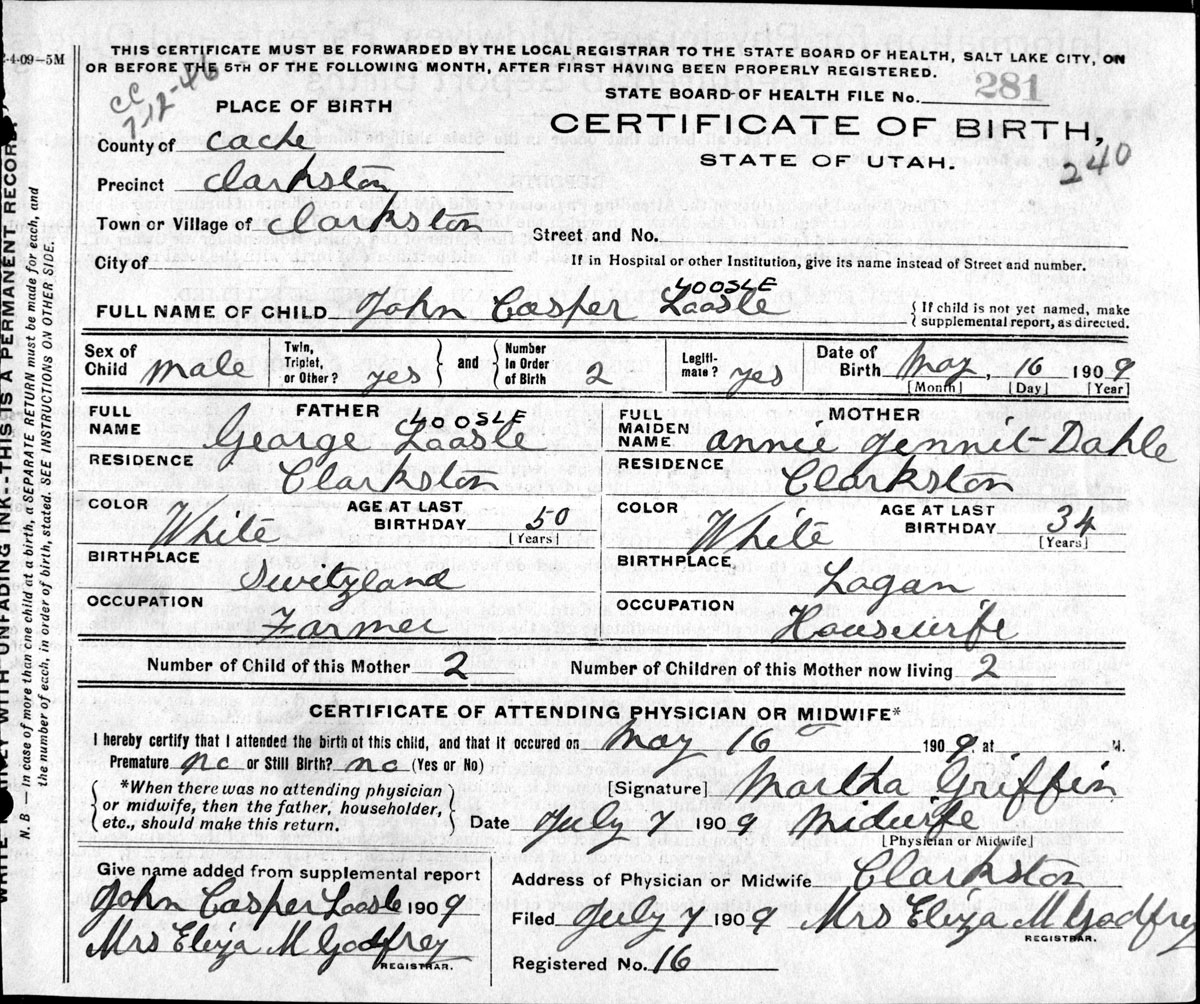 2-4-09-5M
THIS CERTIFICATE MUST BE FORWARDED BY THE LOCAL REGISTRAR TO THE STATE BOARD OF HEALTH, SALT LAKE CITY, ON
OR BEFORE THE 5TH OF THE FOLLOWING MONTH, AFTER FIRST HAVING BEEN PROPERLY REGISTERED.
CC
7-12-46
STATE BOARD OF HEALTH FILE No. 281
PLACE OF BIRTH
CERTIFICATE OF BIRTH,
STATE OF UTAH.
240
County of Cache
Precinct Clarkston
Town or Village of Clarkston
Street and No.
City of
If in Hospital or other Institution, give its name instead of Street and number.
LOOSLE
FULL NAME OF CHILD John Casper Laasle
{ If child is not yet named, make supplemental report, as directed.
Sex of Child male
Twin, Triplet, or Other? yes } and { Number In Order of Birth 2
Legitimate? yes
Date of Birth May, 16 1909
[Month] [Day] [Year]
FATHER
LOOSLE
FULL NAME George Laasle
RESIDENCE Clarkston
COLOR White AGE AT LAST BIRTHDAY 50
[Years]
BIRTHPLACE Switzland
OCCUPATION Farmer
MOTHER
FULL MAIDEN NAME Annie Jennet Dahle
RESIDENCE Clarkston
COLOR White AGE AT LAST BIRTHDAY 34
[Years]
BIRTHPLACE Logan
OCCUPATION Housewife
Number of Child of this Mother 2 Number of Children of this Mother now living 2
CERTIFICATE OF ATTENDING PHYSICIAN OR MIDWIFE*
I hereby certify that I attended the birth of this child, and that it occured on May 16 1909 at M.
Premature no or Still Birth? no (Yes or No)
*When there was no attending physician
or midwife, then the father, householder,
etc., should make this return.
[Signature] Martha Griffin
Date July 7 1909 Midwife
[Physician or Midwife]
Give name added from supplemental report
John Casper Laasle 1909
Mrs Eliza M Godfrey
REGISTRAR.
Address of Physician or Midwife Clarkston
Filed July 7 1909 Mrs Eliza M Godfrey
REGISTRAR.
Registered No. 16
WITH UNFADING INK--THIS IS A PERMANENT RECORD
N. B — in case of more than one child at a birth, a SEPARATE RETURN must be made for each, and
the number of each, in order of birth, stated. SEE INSTRUCTIONS ON OTHER SIDE.